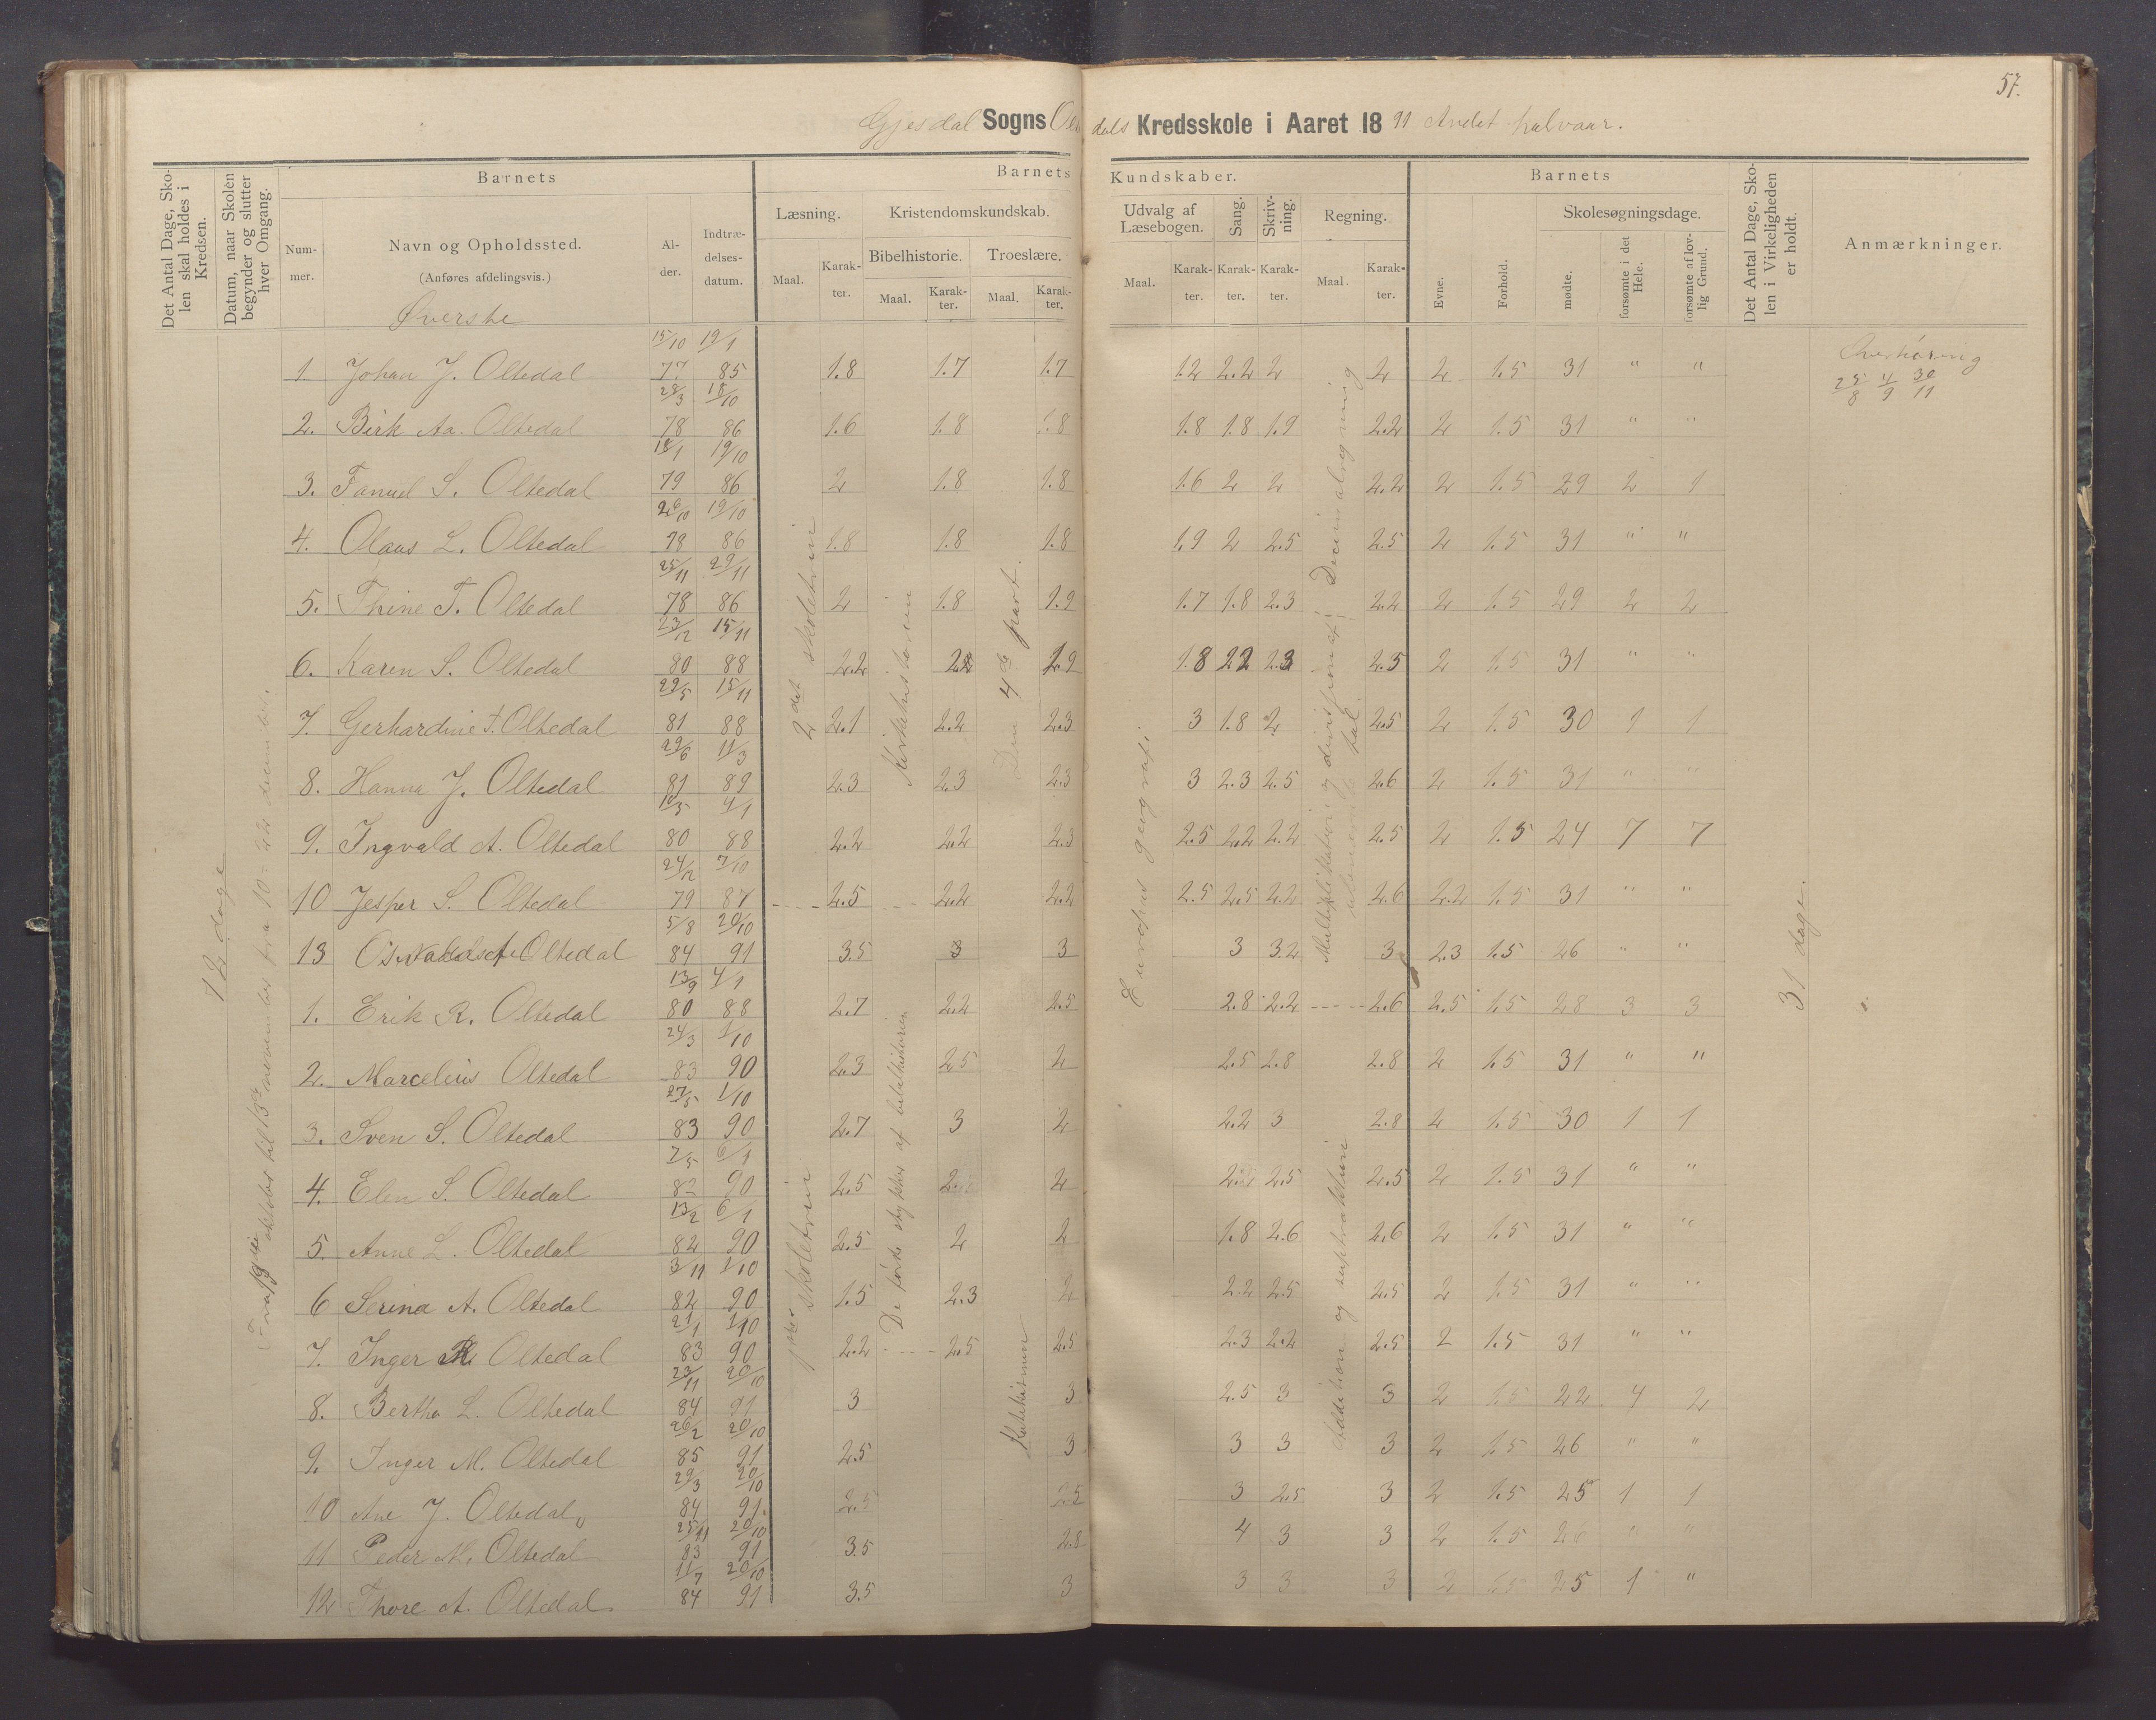 57.
Gjesdal Sogns Oltedals Kredsskole i Aaret 1891 Andet halvaar.
Det Antal Dage, Skolen skal holdes i Kredsen.
Datum, naar Skolen begynder og slutter hver Omgang.
Barnets
Nummer.
Navn og Opholdssted.
(Anføres afdelingsvis.)
Alder.
Indtrædelsesdatum.
Barnets Kundskaber.
Læsning.
Maal. Karakter.
Kristendomskundskab.
Bibelhistorie. Troeslære.
Maal. Karakter. Maal. Karakter.
Udvalg af Læsebogen.
Maal. Karakter.
Sang. Karakter.
Skrivning. Karakter.
Regning.
Maal. Karakter.
Barnets
Evne. Forhold.
Skolesøgningsdage.
mødte. forsømte i det Hele. forsømte af lovlig Grund.
Det Antal Dage, Skolen i Virkeligheden er holdt.
Anmærkninger.
Øverste
Overhøring
25/8 4/9 30/11
1. Johan J. Oltedal 15/10 77 19/1 85 1.8 1.7 1.7 1.2 2.2 2 2 2 1.5 31 " "
2. Birk Aa. Oltedal 28/3 78 18/10 86 1.6 1.8 1.8 1.8 1.8 1.9 2.2 2 1.5 31 " "
3. Tanud S. Oltedal 18/1 79 19/10 86 2 1.8 1.8 1.6 2 2 2.2 2 1.5 29 2 1
4. Olaus L. Oltedal 26/10 78 19/10 86 1.8 1.8 1.8 1.9 2 2.5 2.5 2 1.5 31 " "
5. Thine T. Oltedal 25/11 78 29/11 86 2 1.8 1.9 1.7 1.8 2.3 2.2 2 1.5 29 2 2
6. Karen S. Oltedal 23/12 80 15/11 88 2.2 1.9 1.8 2.2 2.3 2.5 2 1.5 31 " "
7. Gerhardine T. Oltedal 29/5 81 15/11 88 2.1 2.2 2.3 3 1.8 2 2.5 2 1.5 30 1 1
8. Hanna J. Oltedal 29/6 81 11/3 89 2.3 2.3 2.3 3 2.3 2.5 2.6 2 1.5 31 " "
9. Ingvald A. Oltedal 80 4/1 88 2.2 2.2 2.3 2.5 2.2 2.2 2.5 2 1.5 24 7 7
10 Jesper S. Oltedal 24/12 79 7/10 87 2.5 2.2 2.2 2.5 2.5 2.2 2.6 2.2 1.5 31 " "
13 Oltedal 5/8 84 20/10 91 3.5 3 3 3 3.2 3 2.3 1.5 26 " "
1. Erik R. Oltedal 13/9 80 4/1 88 2.7 2.2 2.5 2.8 2.2 2.6 2.5 1.5 28 3 3
2. Marcelius Oltedal 24/3 83 1/10 90 2.3 2.5 2 2.5 2.8 2.8 2 1.5 31 " "
3. Sven S. Oltedal 27/5 83 1/10 90 2.7 3 2 2.2 3 2.8 2 1.5 30 1 1
4. Elen S. Oltedal 7/5 82 6/1 90 2.5 2 2.5 2.5 2 1.5 31 " "
5. Anne L. Oltedal 13/2 82 6/1 90 2.5 2 2 1.8 2.6 2.6 2 1.5 31 " "
6 Serina A. Oltedal 3/11 82 1/10 90 1.5 2.3 2 2.2 2.5 2.5 2 1.5 31 " "
7. Inger R. Oltedal 21/1 83 1/10 90 2.2 2.5 2.5 2.3 2.2 2.5 2 1.5 31 " "
8. Bertha L. Oltedal 23/11 84 20/10 91 3 3 2.5 3 3 2 1.5 22 4 2
9. Inger M. Oltedal 26/2 85 20/10 91 2.5 3 3 3 3 2 1.5 26 " "
10 Ane J. Oltedal 29/3 84 20/10 91 2.5 2.5 3 2.5 3 2 1.5 25 1 1
11 Peder M. Oltedal 25/11 83 20/10 91 3.5 2.8 4 3 3 2 1.5 26 " "
12 Thore A. Oltedal 11/7 84 20/10 91 3.5 3 3 3 3 2 1.5 25 1 "
72 dage
Fra 19de oktober til 13de november fra 10 - 22 december.
2det skoletrin
Kirkehistorien
Den 4de part.
Europas geografi
Multiplikation og division i Decimalregning
1ste skoletrin
De første stykker af bibelhistorien
Katekismen
Addition og subtraktion
31 dage.